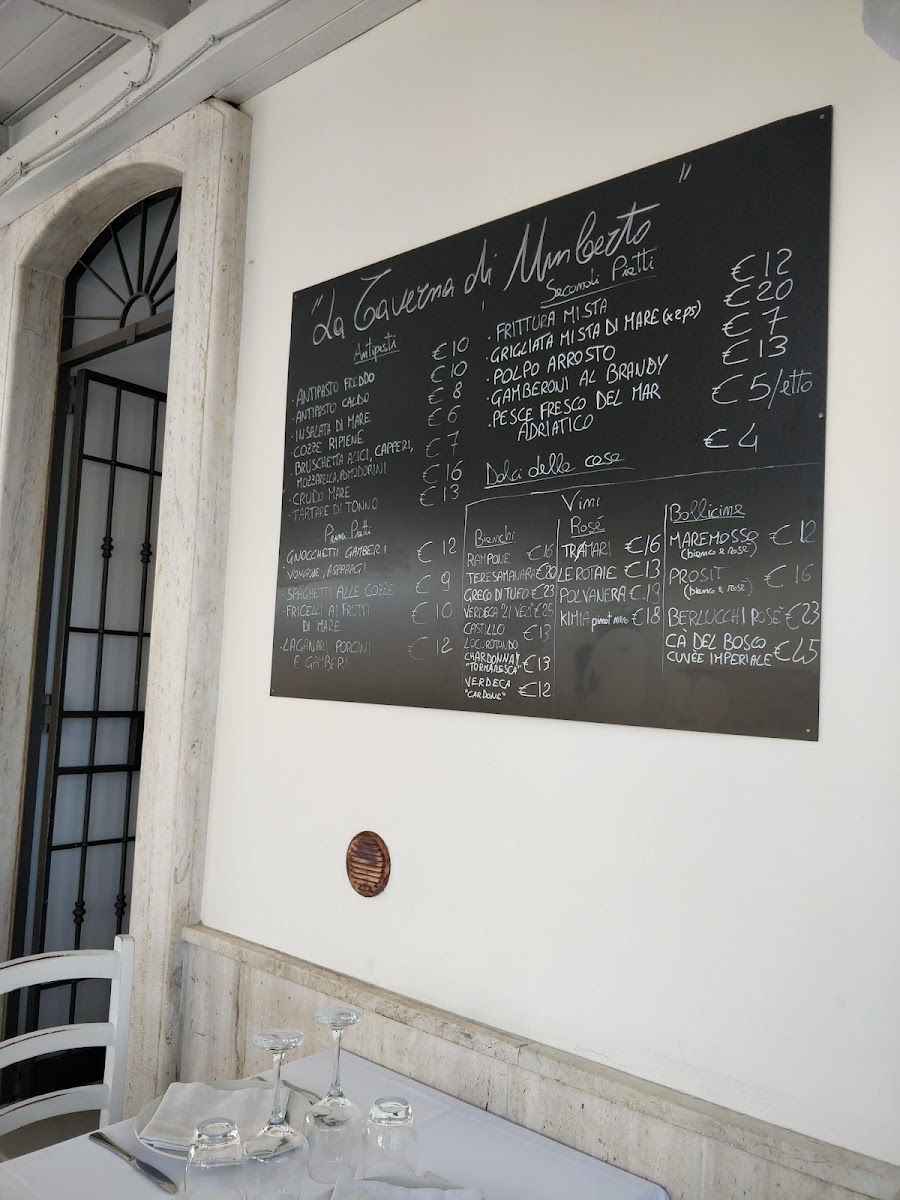 "La Taverna di Umberto"
Antipasti
· ANTIPASTO FREDDO €10
· ANTIPASTO CALDO €10
· INSALATA DI MARE €8
· COZZE RIPIENE €6
· BRUSCHETTA ALICI, CAPPERI, €7
MOZZARELLA, POMODORINI
· CRUDO MARE €16
· TARTARE DI TONNO €13
Primi Piatti
· GNOCCHETTI GAMBERI €12
VONGOLE, ASPARAGI
· SPAGHETTI ALLE COZZE €9
· FRICELLI AI FRUTTI €10
DI MARE
· LAGANARI PORCINI €12
E GAMBERI
Secondi Piatti
· FRITTURA MISTA €12
· GRIGLIATA MISTA DI MARE (x2ps) €20
· POLPO ARROSTO €7
· GAMBERONI AL BRANDY €13
· PESCE FRESCO DEL MAR €5/etto
ADRIATICO
Dolci della casa €4
Vini
Bianchi
RAMPONE €16
TERESAMANARA €20
GRECO DI TUFO €23
VERDECA €25
CASTILLO €13
LOCOROTONDO
CHARDONNAY €13
"TORMARESCA"
VERDECA €12
"CARDONE"
Rosé
TRAMARI €16
LE ROTAIE €13
POLVANERA €13
KIMIA pinot nero €18
Bollicine
MAREMOSSO €12
(bianco e rosé)
PROSIT €16
(bianco e rosé)
BERLUCCHI ROSÉ €23
CÀ DEL BOSCO €45
CUVÉE IMPERIALE